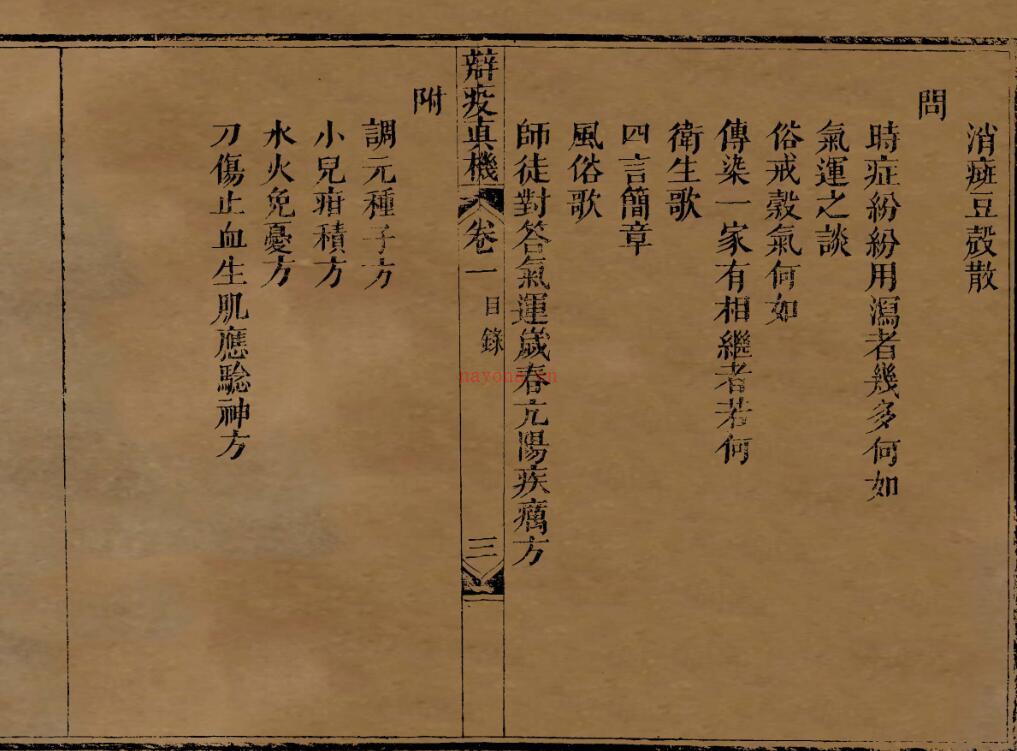 消斑豆殼散
問
時症紛紛用瀉者幾多何如
氣運之談
俗戒穀氣何如
傳染一家有相繼者若何
衛生歌
四言簡章
風俗歌
師徒對答氣運歲春亢陽疾癘方
辯疫真機 卷一 目錄 三
附
調元種子方
小兒疳積方
水火免憂方
刀傷止血生肌應驗神方